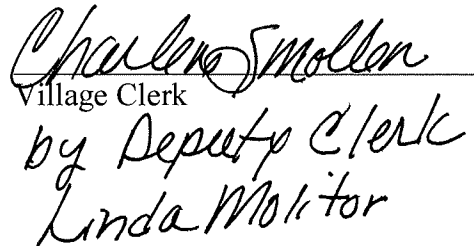 Charlene Smollen
Village Clerk
by Deputy Clerk
Linda Molitor